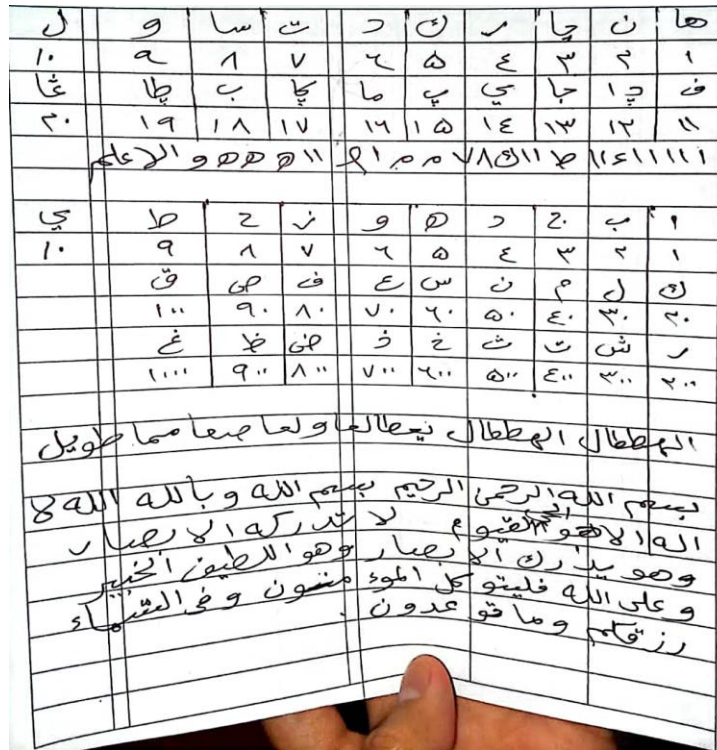 ها ن چا ر ك د ت سا و ل
١ ٢ ٣ ٤ ٥ ٦ ٧ ٨ ٩ ١٠
ف دا جا ي پ ما كا ب طا غا
١١ ١٢ ١٣ ١٤ ١٥ ١٦ ١٧ ١٨ ١٩ ٢٠
ا ب ج د ه و ز ح ط ي
١ ٢ ٣ ٤ ٥ ٦ ٧ ٨ ٩ ١٠
ك ل م ن س ع ف ص ق
٢٠ ٣٠ ٤٠ ٥٠ ٦٠ ٧٠ ٨٠ ٩٠ ١٠٠
ر ش ت ث خ ذ ض ظ غ
٢٠٠ ٣٠٠ ٤٠٠ ٥٠٠ ٦٠٠ ٧٠٠ ٨٠٠ ٩٠٠ ١٠٠٠
الهططال الهططال طويل
بسم الله الرحمن الرحيم بسم الله وبالله الله لا
اله الا هو الحي القيوم لا تدركه الابصار
وهو يدارك الابصار وهو اللطيف الخبير
وعلى الله فليتوكل الموء منون وفى السماء
رزقكم وما توعدون.